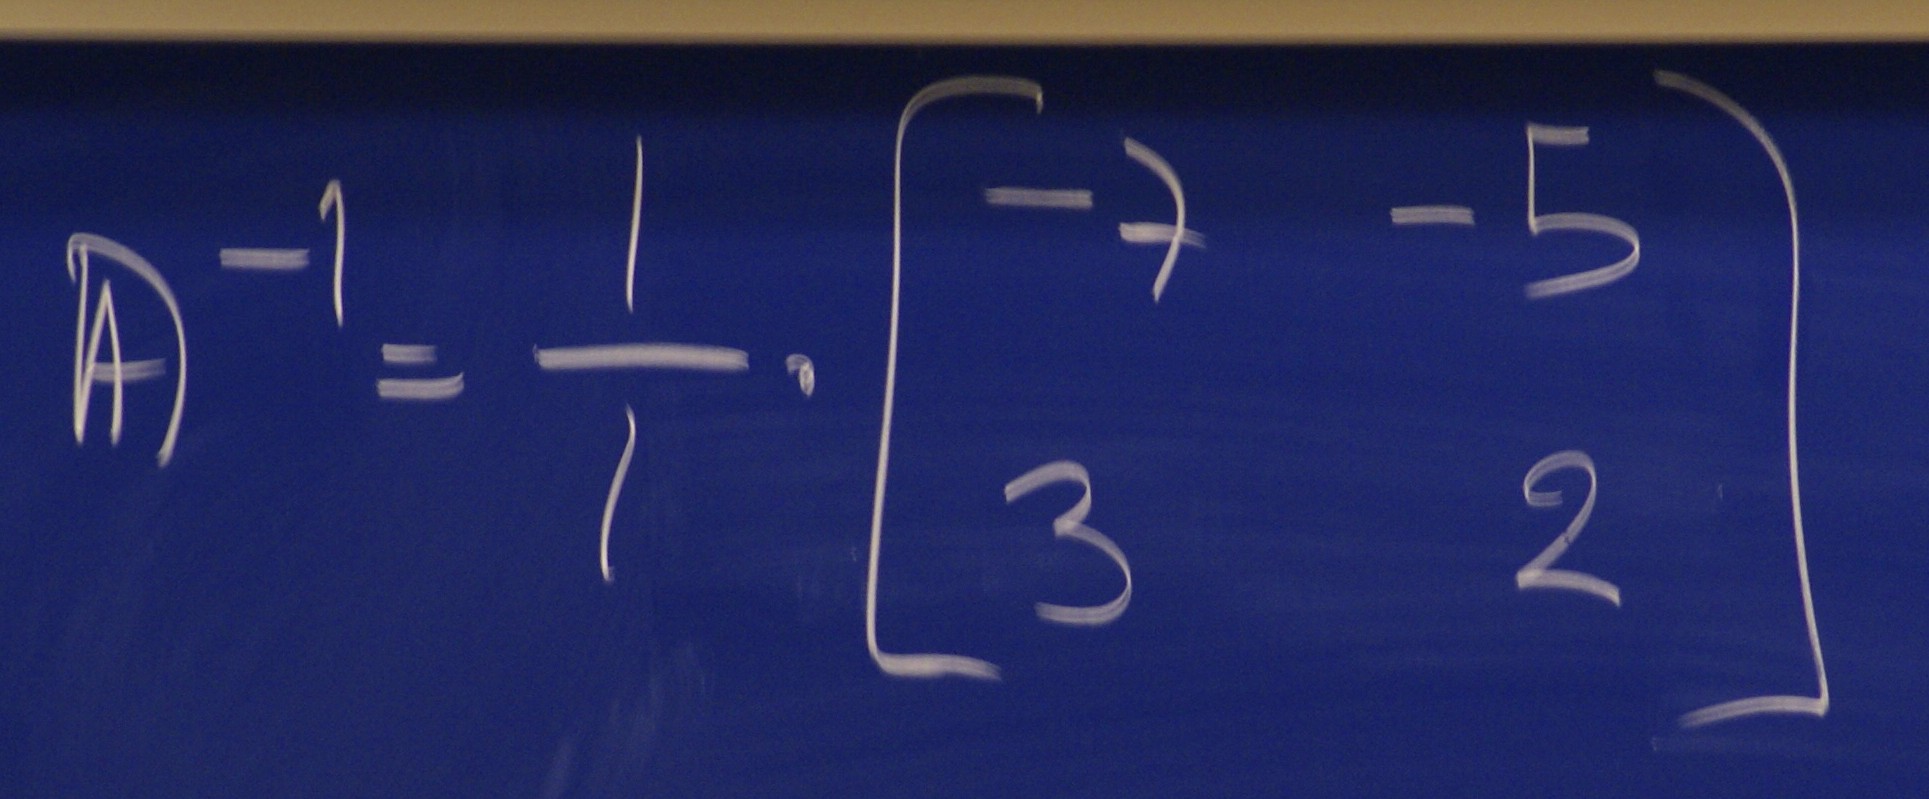 A⁻¹ = 1/1 · [ -7 -5
3 2 ]